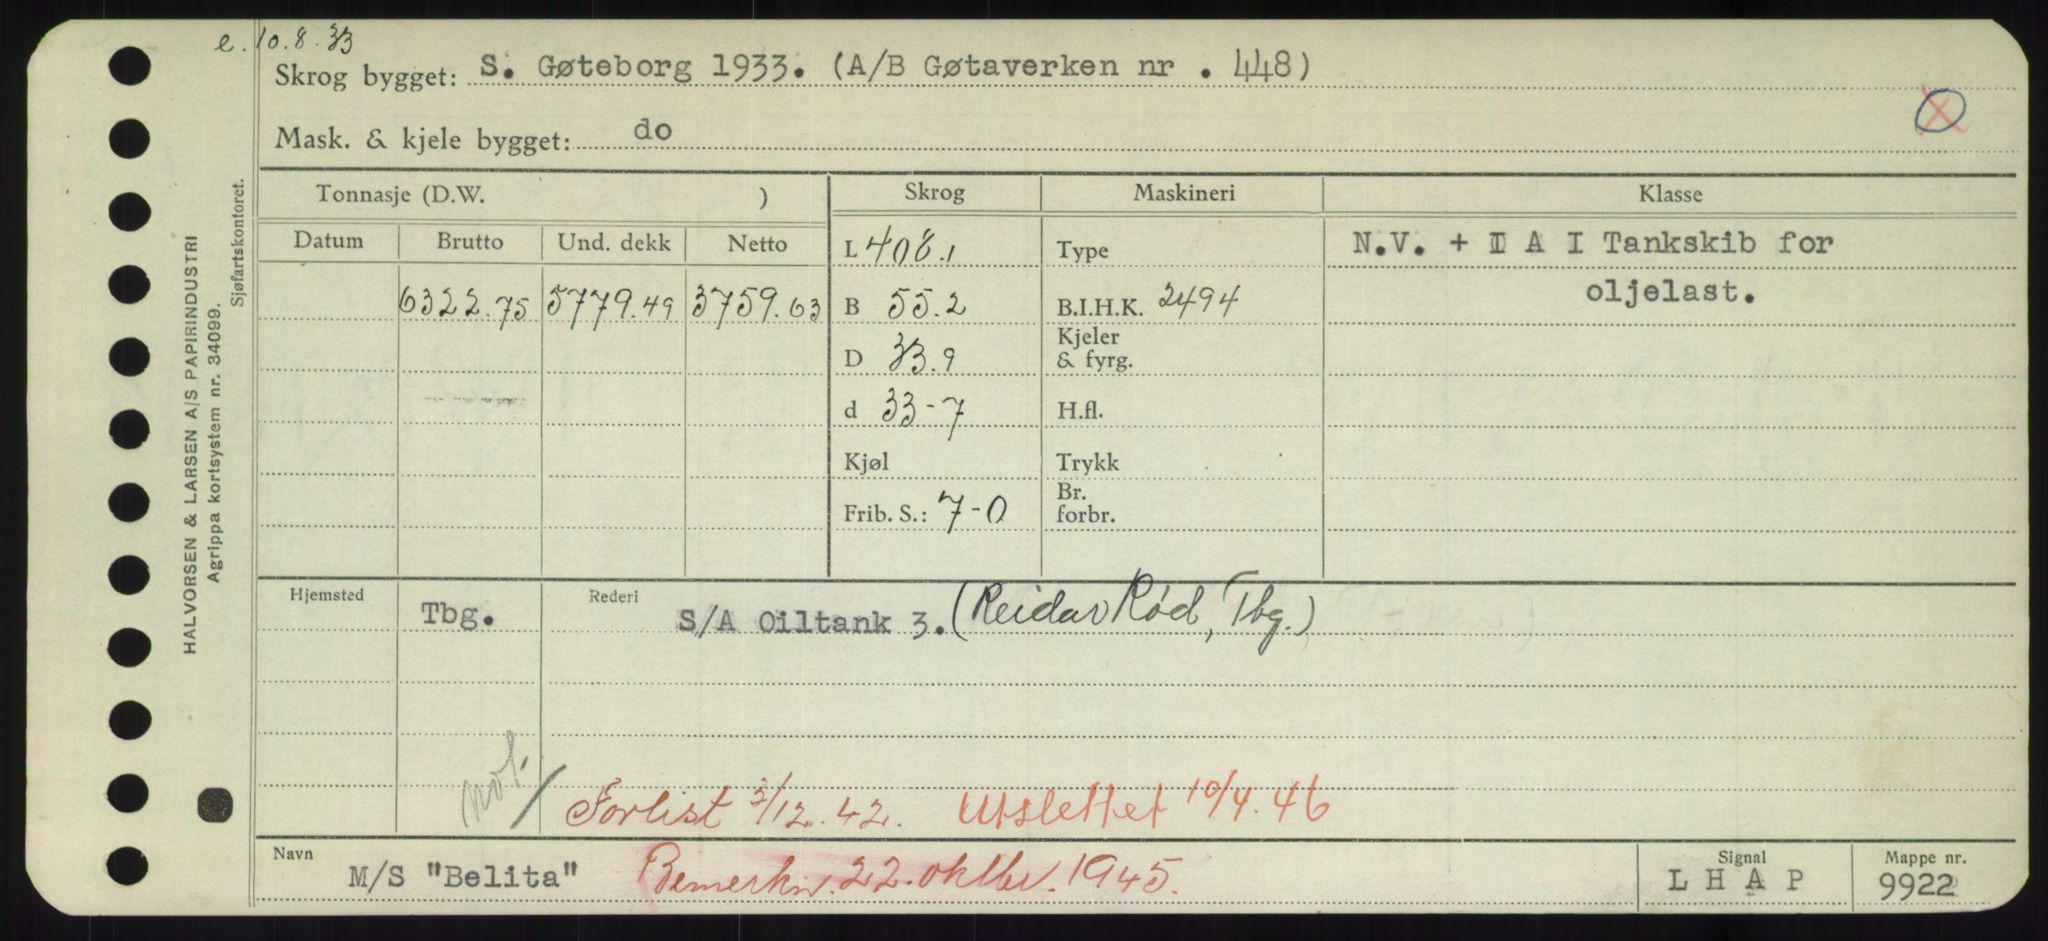 e. 10.8.33
Skrog bygget: S. Gøteborg 1933. (A/B Gøtaverken nr . 448)
Mask. & kjele bygget: do
Tonnasje (D.W. ) Skrog Maskineri Klasse
Datum Brutto Und. dekk Netto
L 408.1 Type N.V. + I A I Tankskib for
oljelast.
6322.75 5779.49 3759.63 B 55.2 B.I.H.K. 2494
D 33.9 Kjeler
& fyrg.
d 33-7 H.fl.
Kjøl Trykk
Frib. S.: 7-0 Br.
forbr.
Hjemsted Tbg. Rederi S/A Oiltank 3. (Reidar Rød, Tbg.)
not. / Forlist 3/12.42. Utslettet 10/4.46
Navn M/S "Belita" Bemerkn. 22. oktbr. 1945.
Signal L H A P
Mappe nr. 9922
HALVORSEN & LARSEN A/S PAPIRINDUSTRI
Agrippa kortsystem nr. 34099.
Sjøfartskontoret.